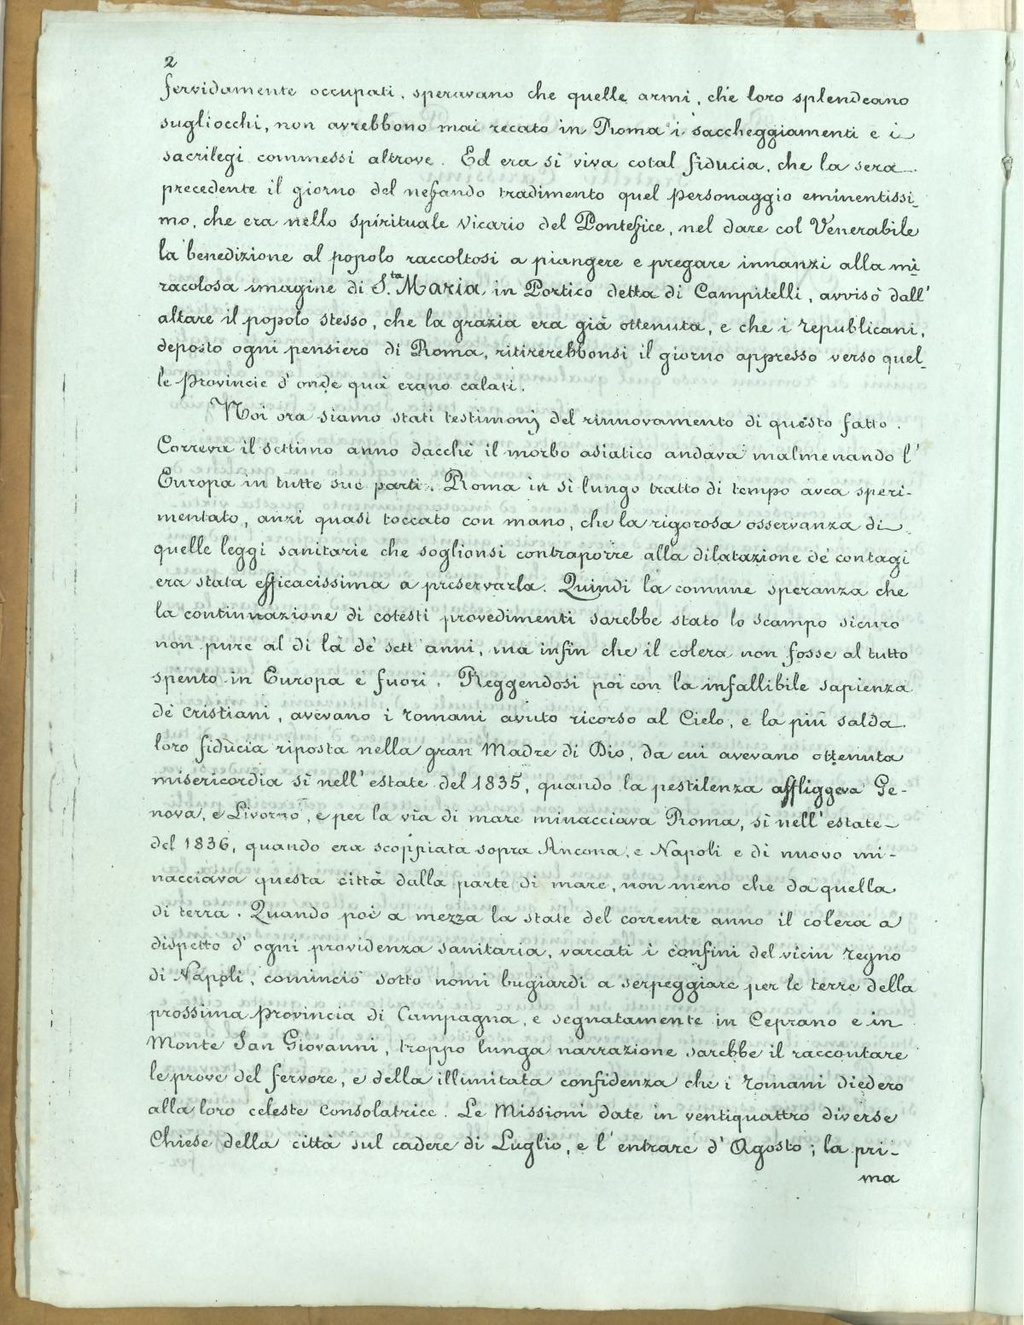 2
fervidamente occupati, speravano che quelle armi, che loro splendeano
sugliocchi, non avrebbono mai recato in Roma i saccheggiamenti e i
sacrilegi commessi altrove. Ed era sì viva cotal fiducia, che la sera
precedente il giorno del nefando tradimento quel personaggio eminentissi
mo, che era nello spirituale Vicario del Pontefice, nel dare col Venerabile
la benedizione al popolo raccoltosi a piangere e pregare innanzi alla mi
racolosa imagine di S.ta Maria in Portico detta di Campitelli, avvisò dall'
altare il popolo stesso, che la grazia era già ottenuta, e che i republicani,
deposto ogni pensiero di Roma, ritirerebbonsi il giorno appresso verso quel
le Provincie d'onde quà erano calati.
Noi ora siamo stati testimonj del rinnovamento di questo fatto.
Correva il settimo anno dacchè il morbo asiatico andava malmenando l'
Europa in tutte sue parti. Roma in sì lungo tratto di tempo avea speri-
mentato, anzi quasi toccato con mano, che la rigorosa osservanza di
quelle leggi sanitarie che soglionsi contraporre alla dilatazione de' contagi
era stata efficacissima a preservarla. Quindi la comune speranza che
la continuazione di cotesti provedimenti sarebbe stato lo scampo sicuro
non pure al di là de' sett'anni, ma infin che il colera non fosse al tutto
spento in Europa e fuori. Reggendosi poi con la infallibile sapienza
de' cristiani, avevano i romani avuto ricorso al Cielo, e la più salda
loro fiducia riposta nella gran Madre di Dio, da cui avevano ottenuta
misericordia sì nell'estate del 1835, quando la pestilenza affliggeva Ge-
nova, e Livorno, e per la via di mare minacciava Roma, sì nell'estate
del 1836, quando era scoppiata sopra Ancona, e Napoli e di nuovo mi-
nacciava questa città dalla parte di mare, non meno che da quella
di terra. Quando poi a mezza la state del corrente anno il colera a
dispetto d'ogni providenza sanitaria, varcati i confini del vicin regno
di Napoli, cominciò sotto nomi bugiardi a serpeggiare per le terre della
prossima Provincia di Campagna, e segnatamente in Ceprano e in
Monte San Giovanni, troppo lunga narrazione sarebbe il raccontare
le prove del fervore, e della illimitata confidenza che i romani diedero
alla loro celeste Consolatrice. Le Missioni date in ventiquattro diverse
Chiese della città sul cadere di Luglio, e l'entrare d'Agosto; la pri-
ma